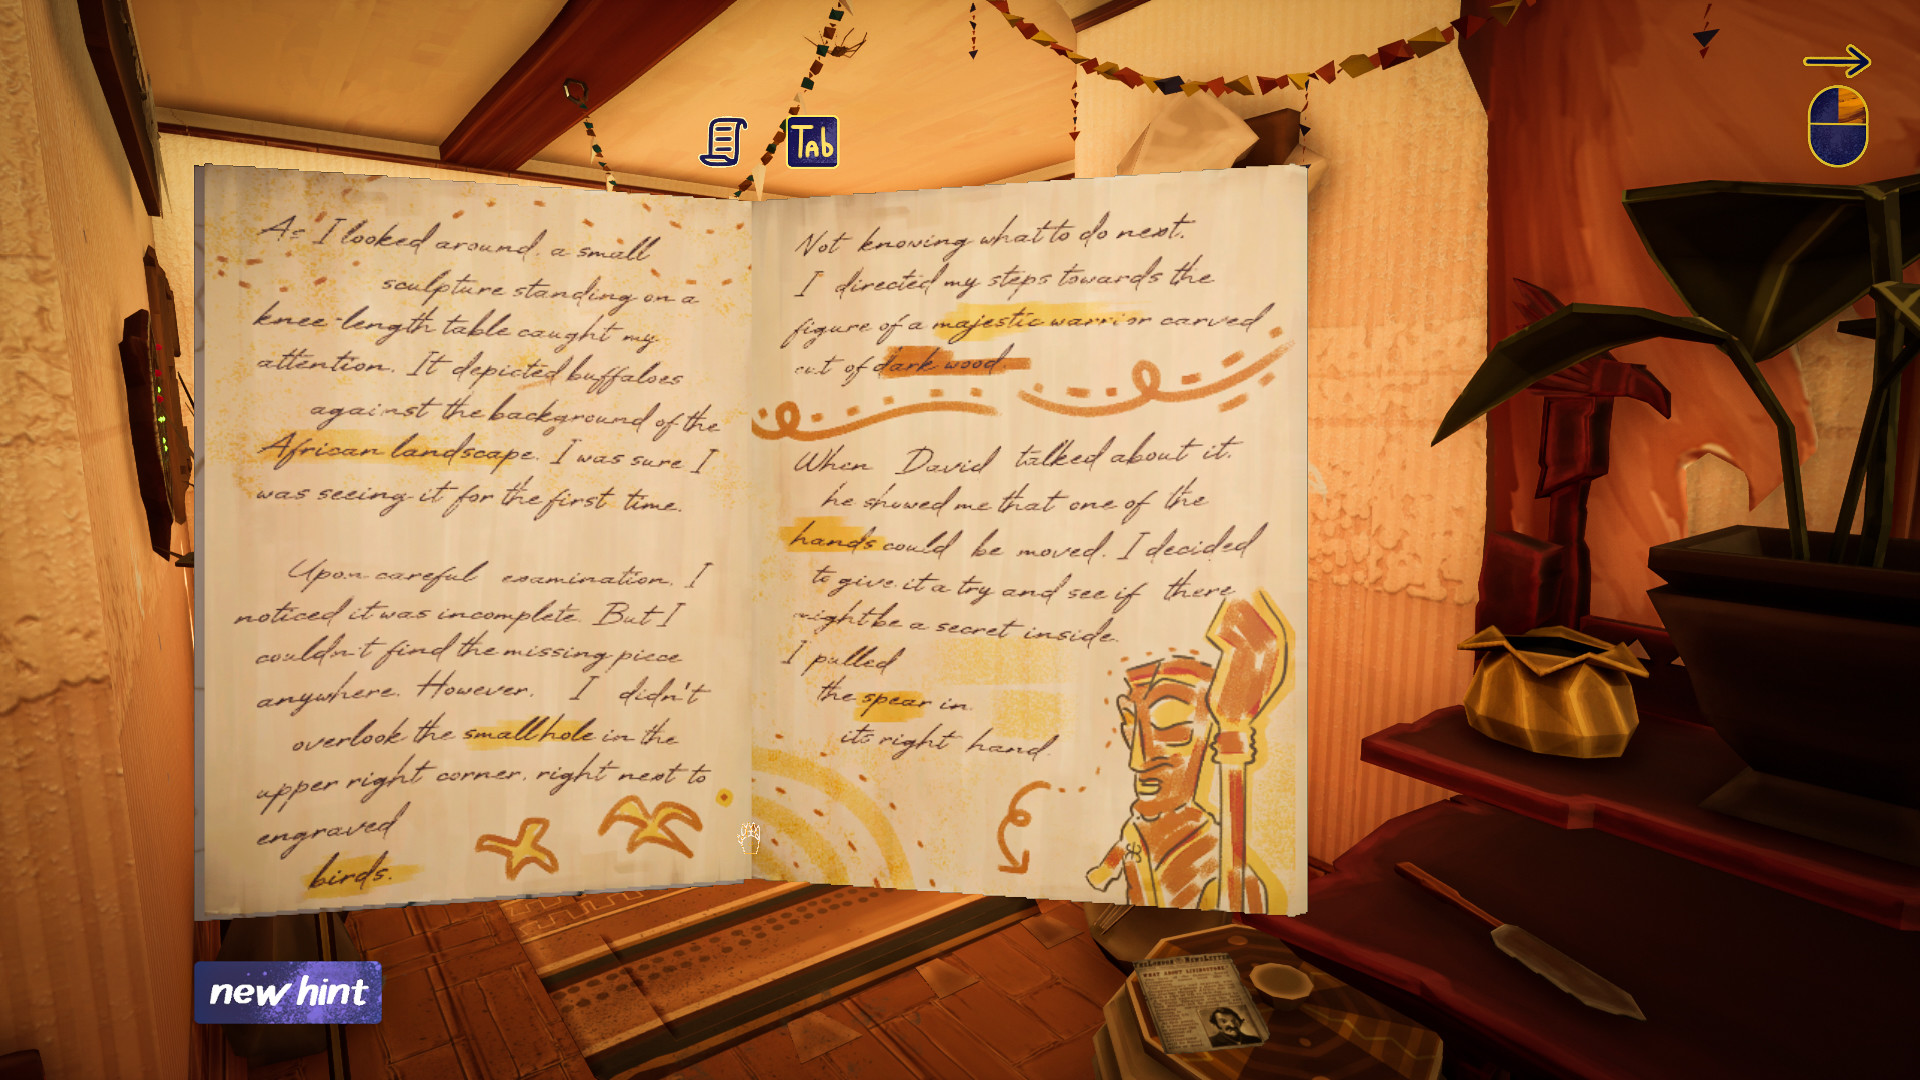 Tab
As I looked around, a small
sculpture standing on a
knee-length table caught my
attention. It depicted buffaloes
against the background of the
African landscape. I was sure I
was seeing it for the first time.
Upon careful examination, I
noticed it was incomplete. But I
couldn't find the missing piece
anywhere. However, I didn't
overlook the small hole in the
upper right corner, right next to
engraved
birds.
Not knowing what to do next,
I directed my steps towards the
figure of a majestic warrior carved
out of dark wood.
When David talked about it,
he showed me that one of the
hands could be moved. I decided
to give it a try and see if there
might be a secret inside.
I pulled
the spear in
its right hand.
new hint
The London Newsletter
WHAT ABOUT LIVINGSTONE?